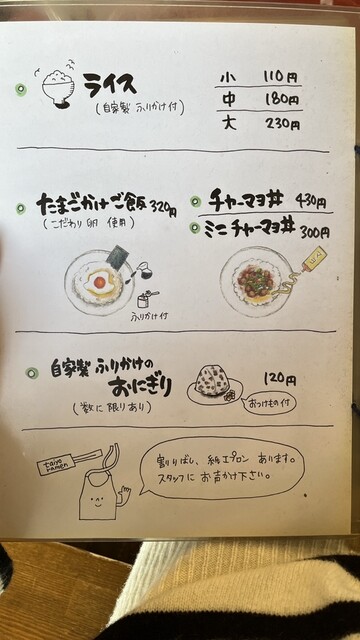 ライス
(自家製 ふりかけ付)
小 110円
中 180円
大 230円
たまごかけご飯 320円
(こだわり卵 使用)
ふりかけ付
チャーマヨ丼 430円
ミニチャーマヨ丼 300円
自家製 ふりかけの
おにぎり
(数に限りあり)
120円
おつけもの付
taiyo
ramen
割りばし、紙エプロン あります。
スタッフに お声かけ下さい。